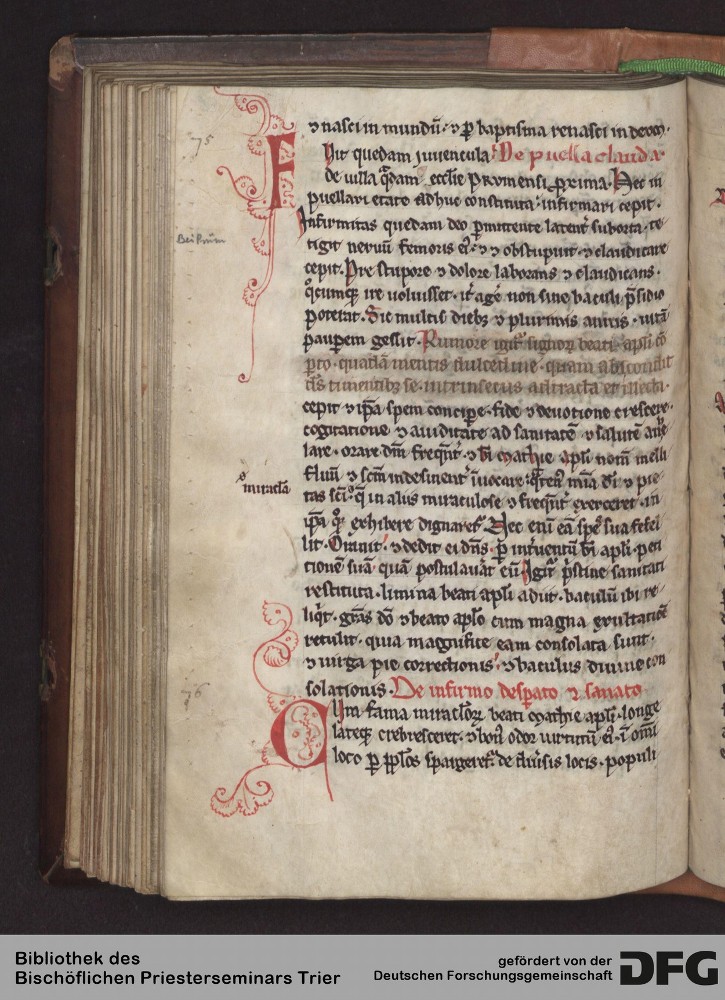 ⁊ nasci in mundū. ⁊ p̄ baptisma renasci in deum.
75
Fuit quedam iuuencula. De puella clauda.
de uilla q̄dam ecclie prumensi proxima. Hec in
puellari etate adhuc constituta. infirmari cepit.
Infirmitas quedam deo permittente latent᷑ suborta. te
Bei Prüm
tigit neruū femoris ei. ⁊ obstupuit. ⁊ claudicare
cepit. Pre stupore ⁊ dolore laborans ⁊ claudicans.
q̊cumq; ire uoluisset. it᷑ age᷑ non sine baculi p̄sidio
poterat. Sic multis dieb; ⁊ plurimis annis. uitā
pauperem gessit. Rumore igit᷑ signor̄ beati apli cō
perto. quadā mentis dulcedine. quam abscondit
dn̄s timentib; se. intrinsecus attracta et illecta.
cepit ⁊ ip̄a spem concipe. fide ⁊ deuotione crescere.
cogitatione ⁊ auiditate ad sanitatē ⁊ salutē anhe
lare. orare dm̄ freq̄nt᷑. ⁊ bi mathie apli nom̄ melli
fluū ⁊ scm̄ indesinent᷑ inuocare. q̄ten᷑ mia di ⁊ pie
miracula
tas sci. q̄ in aliis miraculose ⁊ freq̄nt᷑ exerceret. in
ip̄a q̊q; exhibere dignaret᷑. Nec eni eā spes sua fefel
lit. Orauit. ⁊ dedit ei dn̄s. p̄ int᷑uentū bi apli. peti
tionē suā quā postulauat eū. Igit᷑ p̄stine sanitati
restituta. limina beati apli adiit. baculū ibi re
liq̄t. gr̄as dō ⁊ beato aplo cum magna exultatiōe
retulit. quia magnifice eam consolata sunt.
⁊ uirga pie correctionis. ⁊ baculus diuine con
solationis. De infirmo desperato ⁊ sanato
76
Cum fama miraclor̄ beati mathie apli. longe
lateq; crebresceret. ⁊ bon᷑ odor uirtutū ei. ī omi
loco p̄ pplos spargeret᷑. de diuersis locis. populi
Bibliothek des
Bischöflichen Priesterseminars Trier
gefördert von der
Deutschen Forschungsgemeinschaft
DFG